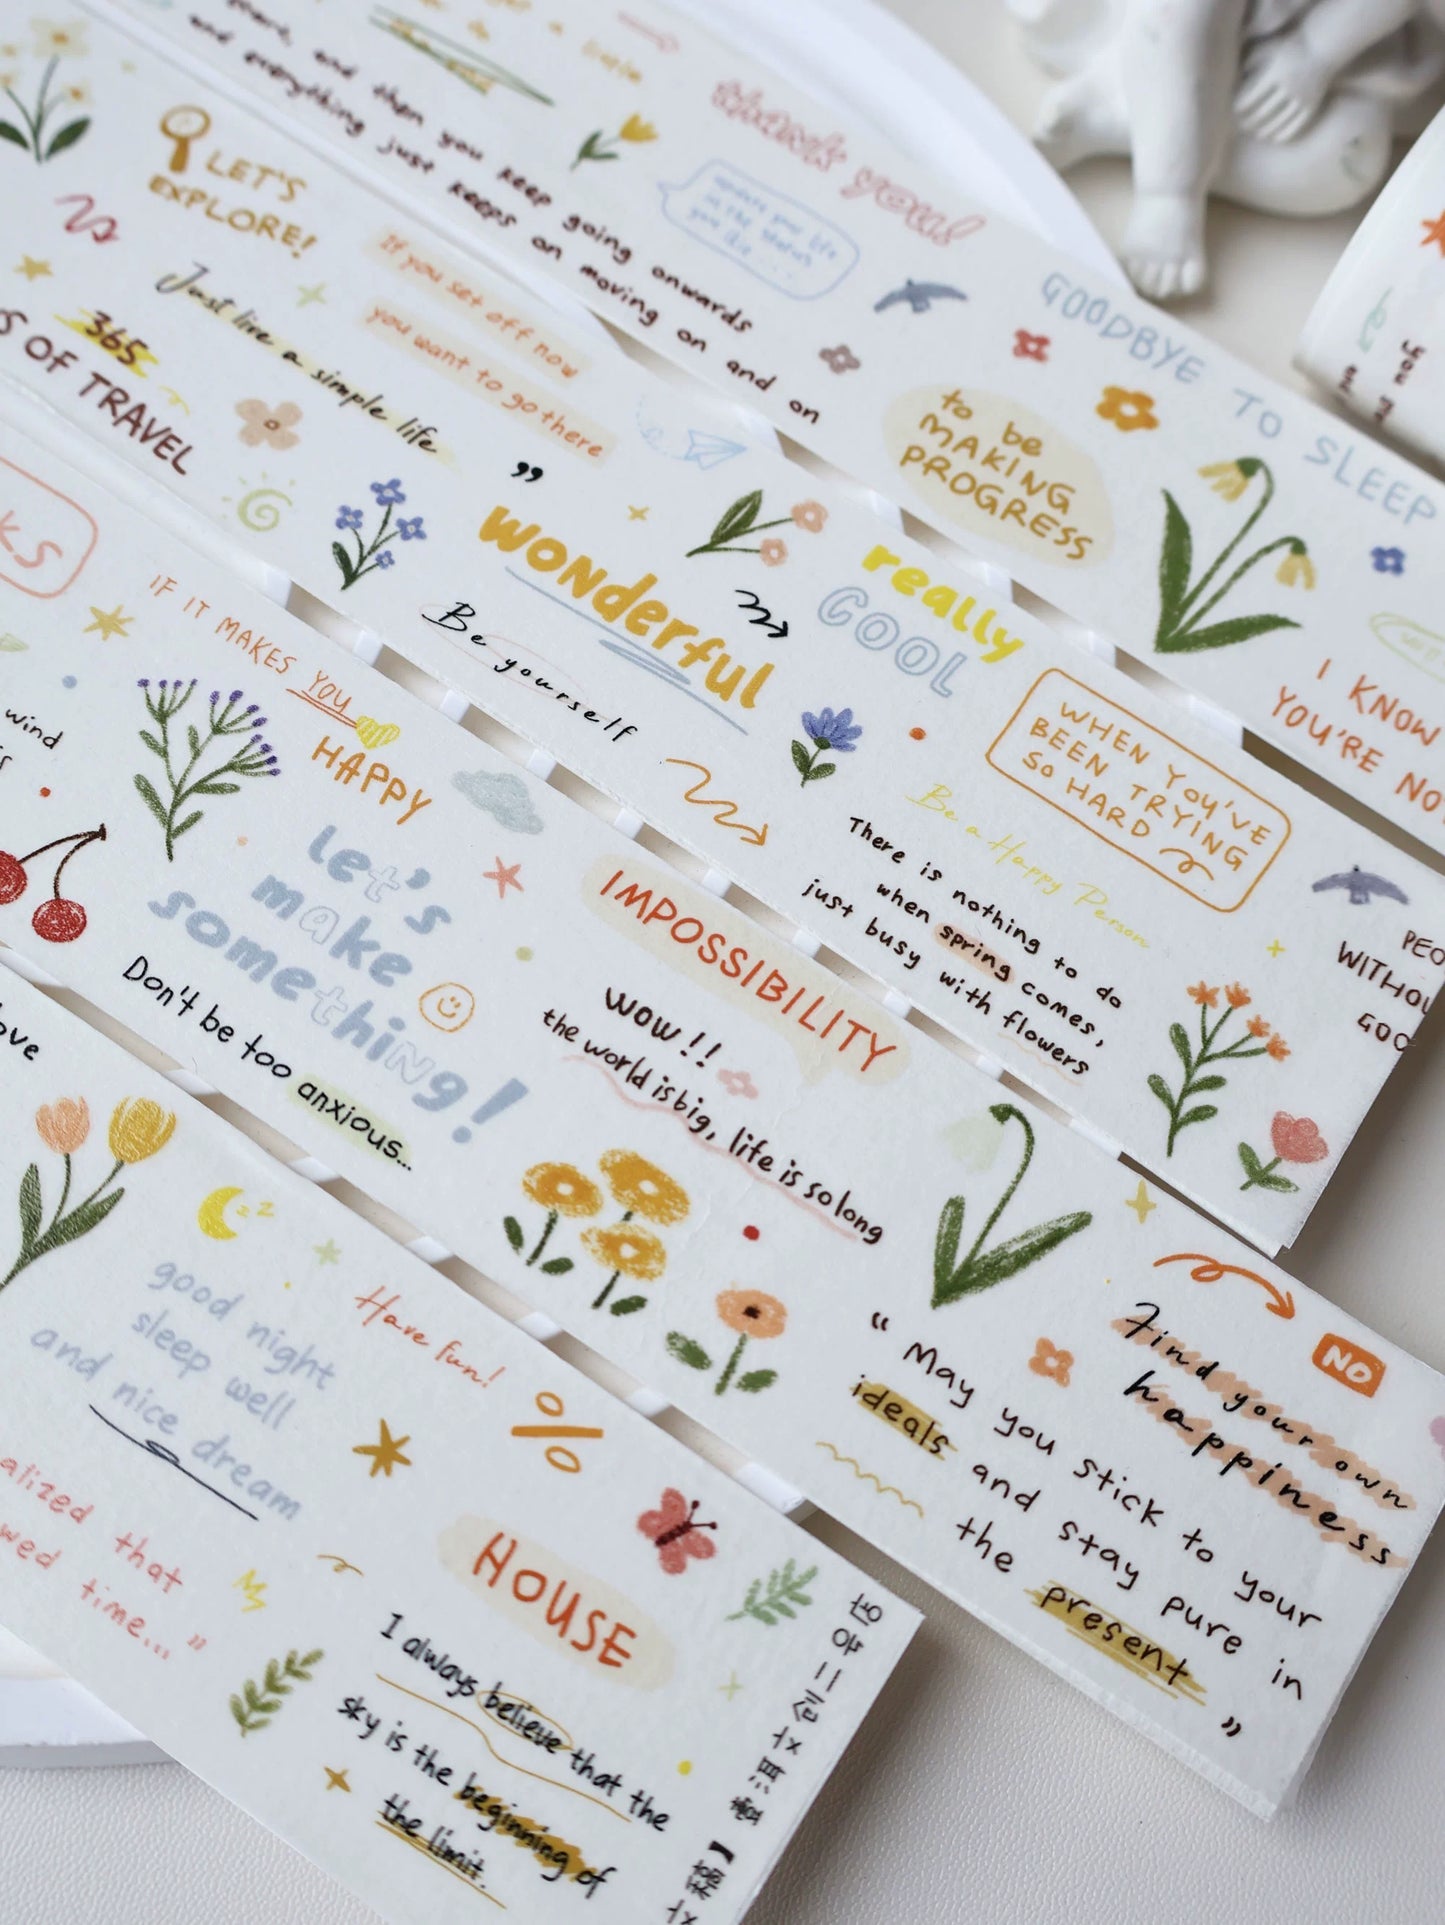 and then you keep going onwards
and everything just keeps on moving on and on
thank you!
update your life
GOODBYE TO SLEEP
to be
MAKING
PROGRESS
I KNOW
YOU'RE NO
LET'S
EXPLORE!
365
S OF TRAVEL
Just live a simple life
If you set off now
you want to go there
”
wonderful
Be yourself
really
COOL
WHEN YOU'VE
BEEN TRYING
SO HARD
Be a Happy Person
There is nothing to do
when spring comes,
just busy with flowers
PEO
WITHOU
GOO
KS
IF IT MAKES YOU
HAPPY
wind
let's
make
something!
Don't be too anxious...
IMPOSSIBILITY
wow!!
the world is big, life is so long
“ May you stick to your
ideals and stay pure in
the present ”
Find your own
happiness
NO
ove
zz
good night
sleep well
and nice dream
Have fun!
alized that
wed time... ”
%
HOUSE
I always believe that the
sky is the beginning of
the limit.